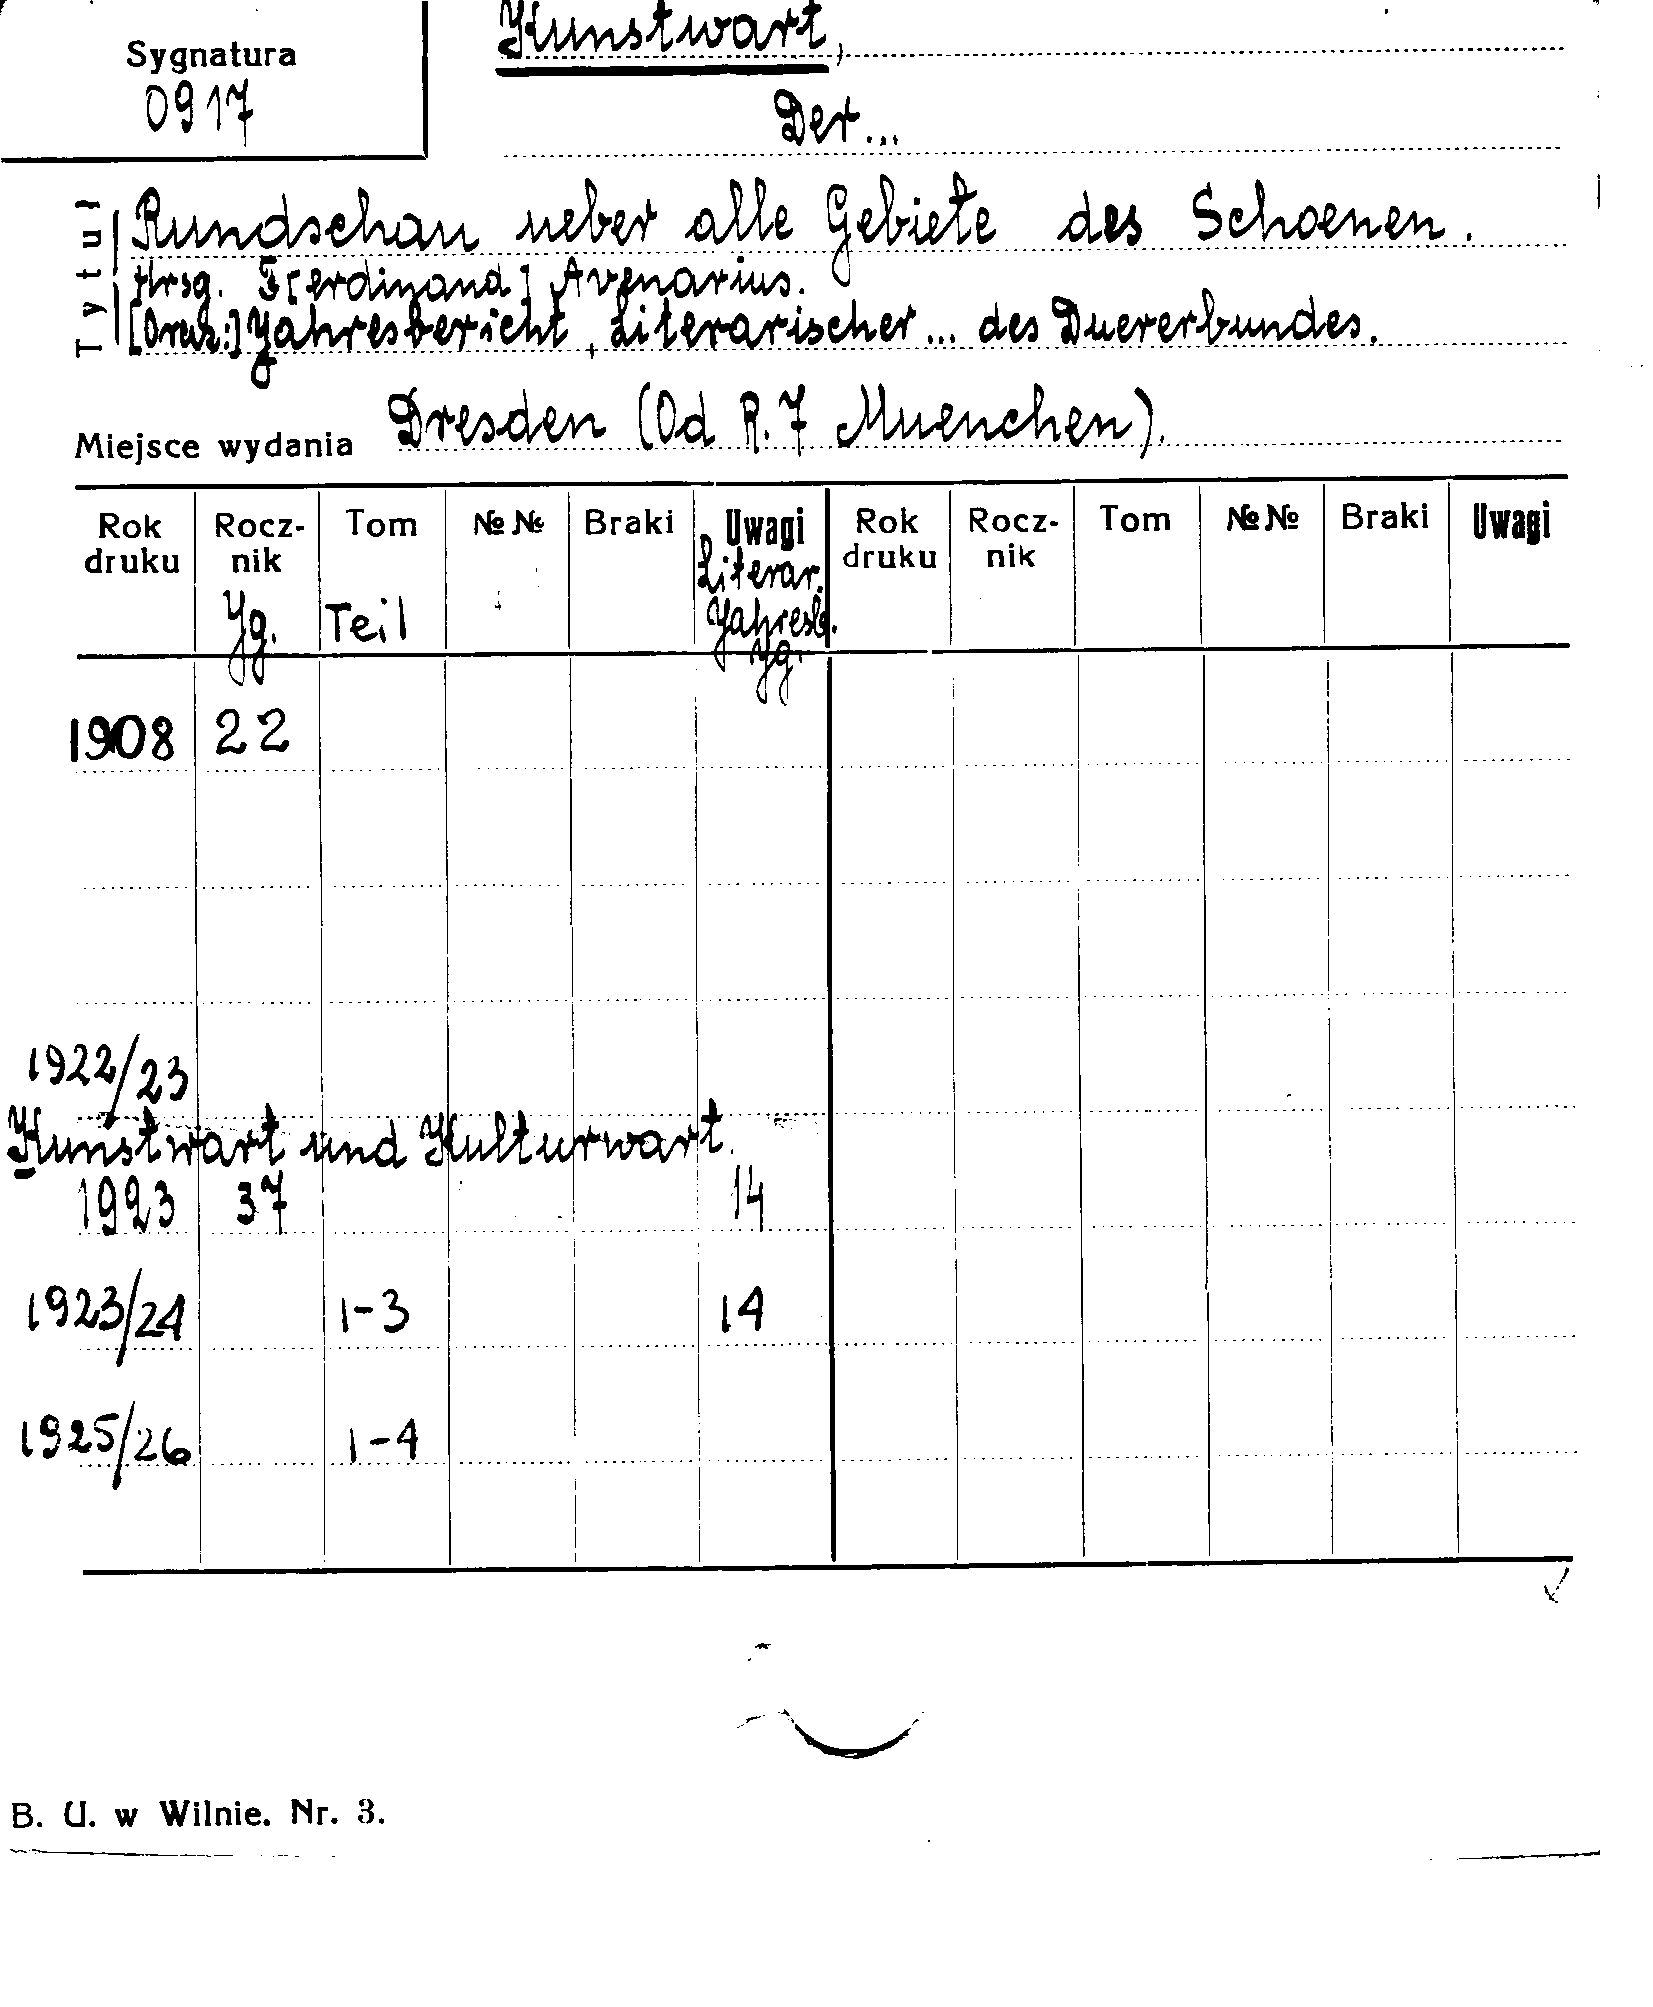 Sygnatura
0917
Kunstwart,
Der...
Tytuł
Rundschau ueber alle Gebiete des Schoenen.
Hrsg. F[erdinand] Avenarius.
[Oraz:] Jahresbericht, Literarischer... des Duererbundes.
Miejsce wydania Dresden (Od R. 7 Muenchen).
Rok druku Rocz-nik Tom №№ Braki Uwagi Rok druku Rocz-nik Tom №№ Braki Uwagi
Jg. Teil Literar. Jahresb. Jg.
1908 22
1922/23
Kunstwart und Kulturwart.
1923 37 14
1923/24 1-3 14
1925/26 1-4
B. U. w Wilnie. Nr. 3.